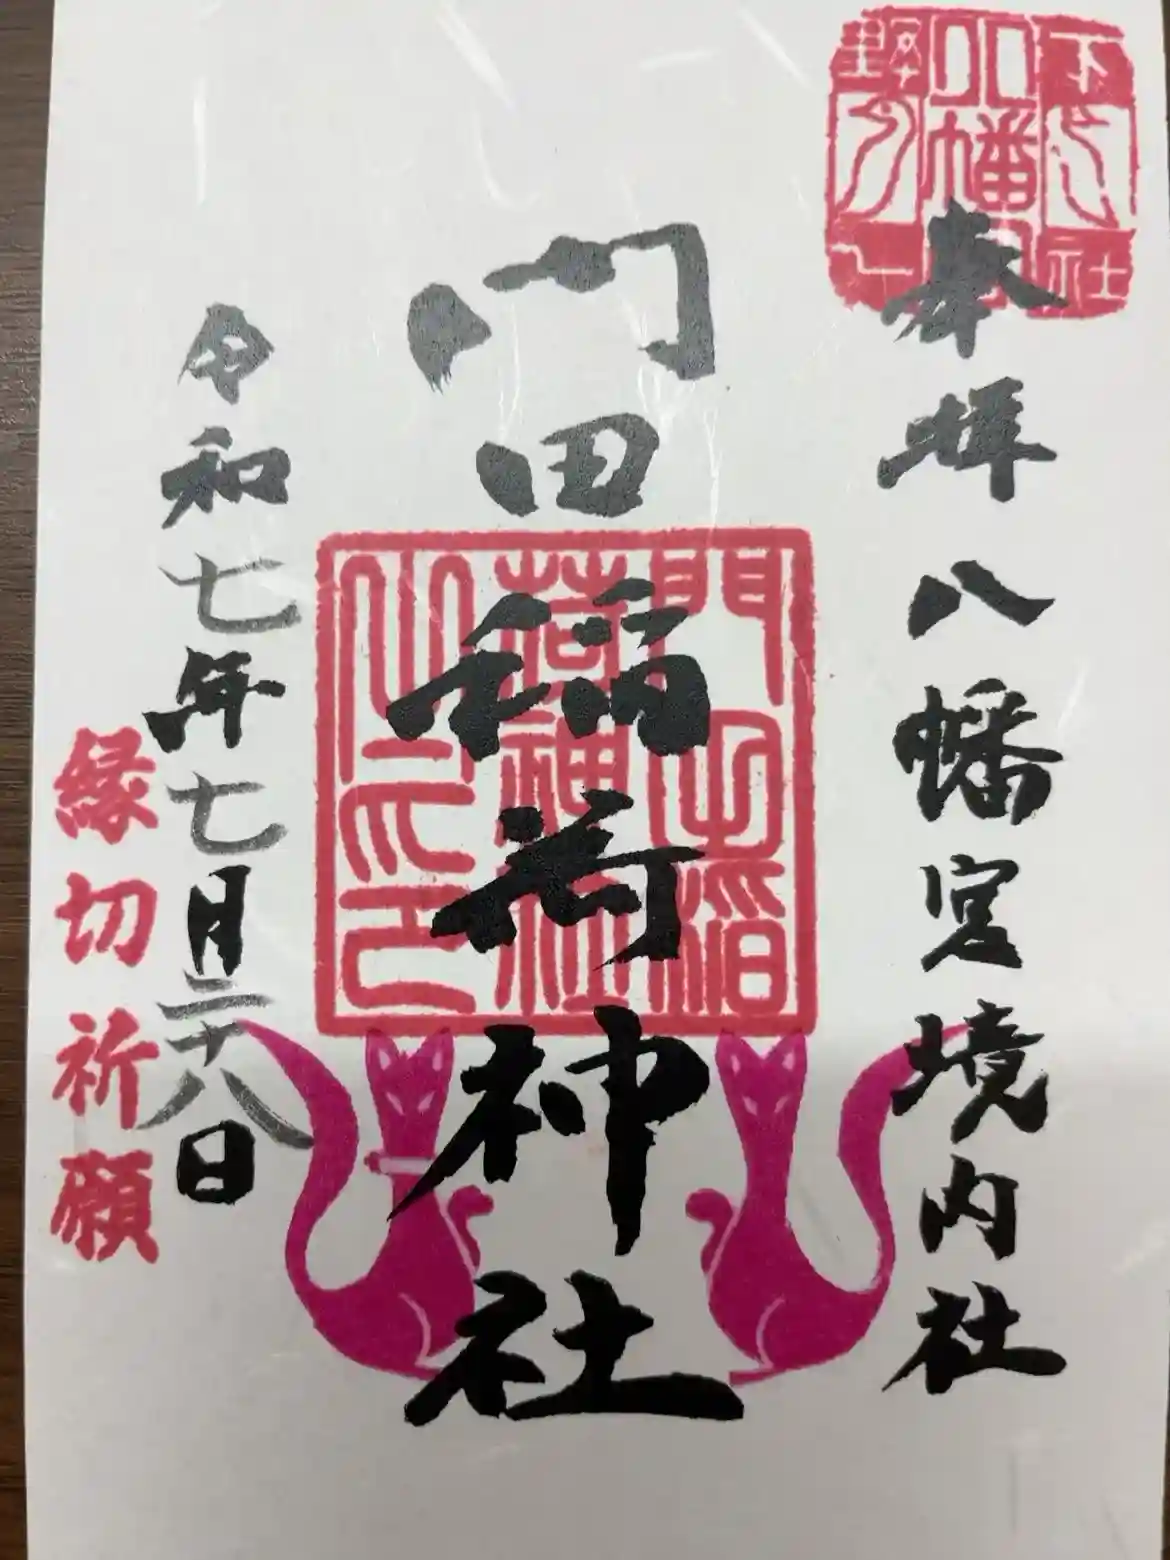 奉拝 八幡宮境内社
門田稲荷神社
門田稲
荷神社
之印
令和七年七月二十八日
縁切祈願